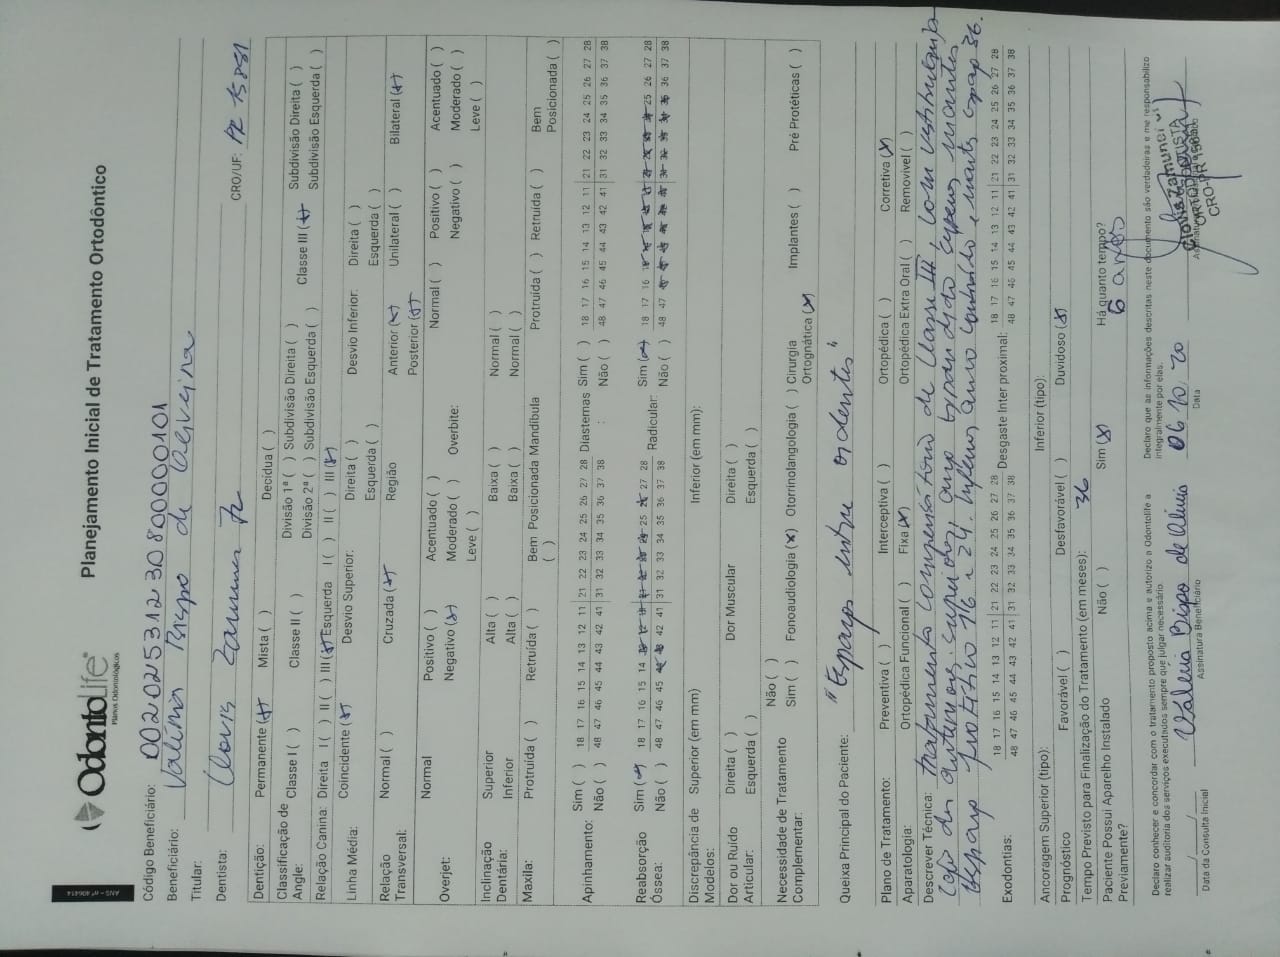 ANS - nº 406414
OdontoLife
Planos Odontológicos
Planejamento Inicial de Tratamento Ortodôntico
Código Beneficiário: 00202453123080000101
Beneficiário: Valéria Bispo de Oliveira
Titular:
Dentista: Clovis Zamunci Jr CRO/UF: PR 15881
Dentição: Permanente (x) Mista ( ) Decídua ( )
Classificação de Angle: Classe I ( ) Classe II ( ) Divisão 1ª ( ) Subdivisão Direita ( ) Classe III (x) Subdivisão Direita ( )
Divisão 2ª ( ) Subdivisão Esquerda ( ) Subdivisão Esquerda ( )
Relação Canina: Direita I ( ) II ( ) III (x) Esquerda I ( ) II ( ) III (x)
Linha Média: Coincidente (x) Desvio Superior: Direita ( ) Desvio Inferior: Direita ( )
Esquerda ( ) Esquerda ( )
Relação Transversal: Normal ( ) Cruzada (x) Região Anterior (x) Unilateral ( ) Bilateral (x)
Posterior (x)
Overjet: Normal Positivo ( ) Acentuado ( ) Overbite: Normal ( ) Positivo ( ) Acentuado ( )
Negativo (x) Moderado ( ) Negativo ( ) Moderado ( )
Leve ( ) Leve ( )
Inclinação Dentária: Superior Alta ( ) Baixa ( ) Normal ( )
Inferior Alta ( ) Baixa ( ) Normal ( )
Maxila: Protruída ( ) Retruída ( ) Bem Posicionada ( ) Mandíbula Protruída ( ) Retruída ( ) Bem Posicionada ( )
Apinhamento: Sim ( ) 18 17 16 15 14 13 12 11 | 21 22 23 24 25 26 27 28 Diastemas Sim ( ) 18 17 16 15 14 13 12 11 | 21 22 23 24 25 26 27 28
Não ( ) 48 47 46 45 44 43 42 41 | 31 32 33 34 35 36 37 38 : Não ( ) 48 47 46 45 44 43 42 41 | 31 32 33 34 35 36 37 38
Reabsorção Óssea: Sim (x) 18 17 16 15 14 25 27 28 Radicular: Sim (x) 18 17 16 25 26 27 28
Não ( ) 48 47 46 45 42 41 | 31 32 33 34 35 36 37 38 Não ( ) 48 47 36 37 38
Discrepância de Modelos: Superior (em mm) Inferior (em mm):
Dor ou Ruído Articular: Direita ( ) Dor Muscular Direita ( )
Esquerda ( ) Esquerda ( )
Necessidade de Tratamento Complementar: Não ( )
Sim ( ) Fonoaudiologia (x) Otorrinolangologia ( ) Cirurgia Ortognática (x) Implantes ( ) Pré Protéticas ( )
Queixa Principal do Paciente: "Espaços entre os dentes"
Plano de Tratamento: Preventiva ( ) Interceptiva ( ) Ortopédica ( ) Corretiva (x)
Aparatologia: Ortopédica Funcional ( ) Fixa (x) Ortopédica Extra Oral ( ) Removível ( )
Descrever Técnica: tratamento compensatório de Classe III, com
espaço protético 16 e 24. espaço 36.
Exodontias: 18 17 16 15 14 13 12 11 | 21 22 23 24 25 26 27 28 Desgaste Inter proximal: 18 17 16 15 14 13 12 11 | 21 22 23 24 25 26 27 28
48 47 46 45 44 43 42 41 | 31 32 33 34 35 36 37 38 48 47 46 45 44 43 42 41 | 31 32 33 34 35 36 37 38
Ancoragem Superior (tipo): Inferior (tipo):
Prognóstico Favorável ( ) Desfavorável ( ) Duvidoso (x)
Tempo Previsto para Finalização do Tratamento (em meses): 36
Paciente Possui Aparelho Instalado Previamente? Não ( ) Sim (x) Há quanto tempo? 6 anos
Declaro conhecer e concordar com o tratamento proposto acima e autorizo a Odontolife a
realizar auditoria dos serviços executados sempre que julgar necessário.
Declaro que as informações descritas neste documento são verdadeiras e me responsabilizo
integralmente por elas.
/ / Valéria Bispo de Oliveira 06 10 20
Data da Consulta Inicial Assinatura Beneficiário Data
Clovis Zamunci Jr
ORTODONTISTA
CRO-PR